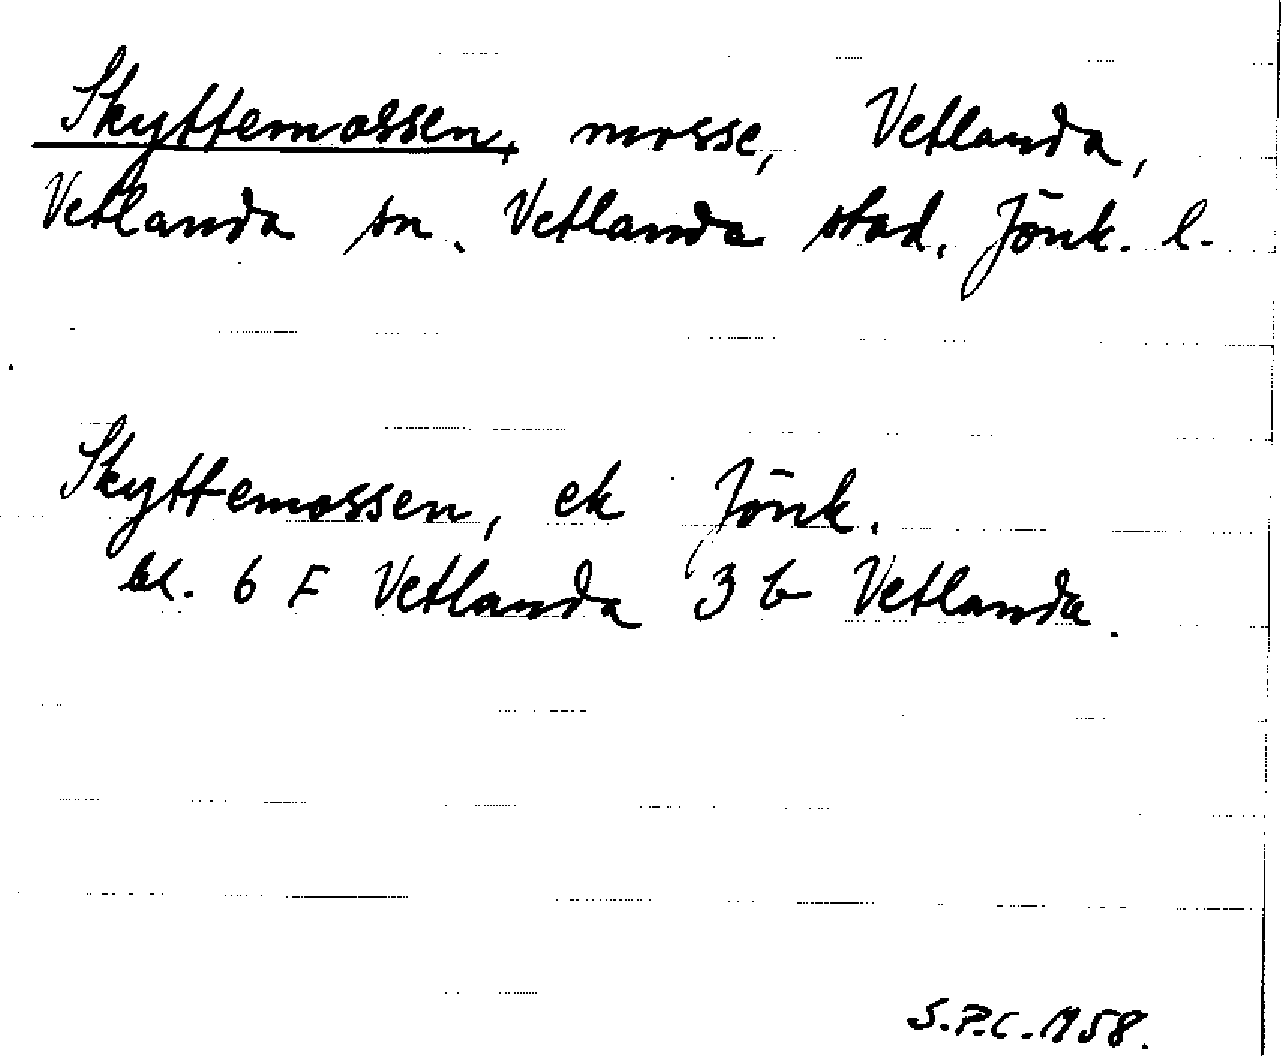 Skyttemossen, mosse, Vetlanda,
Vetlanda sn. Vetlanda stad. Jönk. l.
Skyttemossen, ek Jönk.
bl. 6 F Vetlanda 3 b Vetlanda.
S.P.C. 1958.